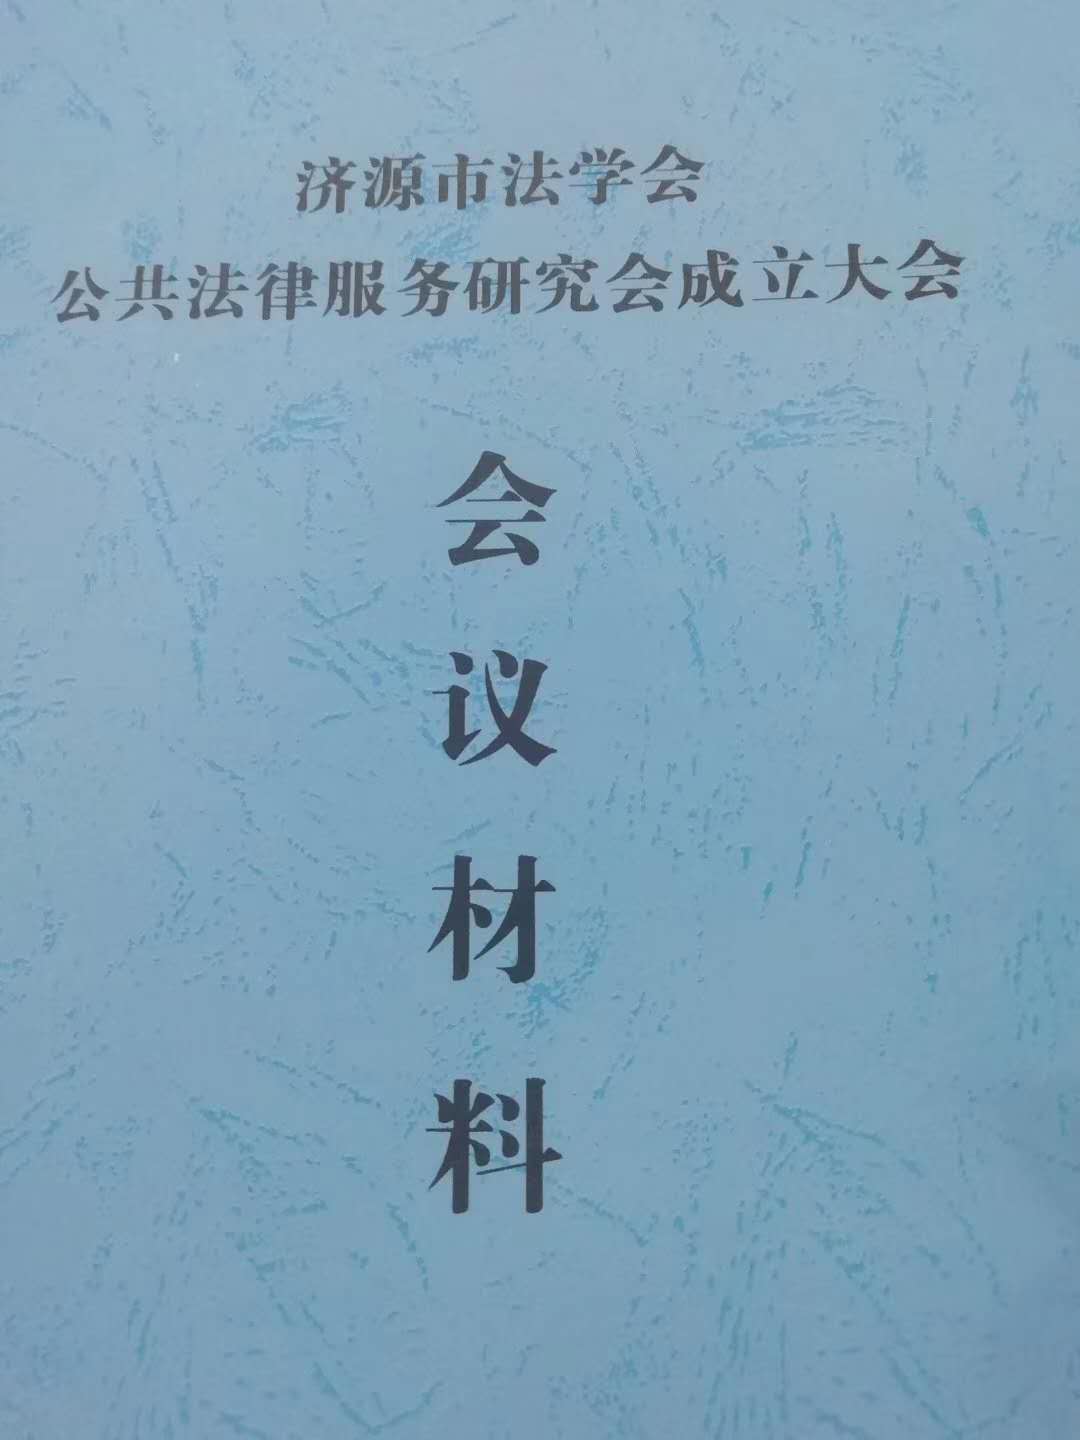 济源市法学会
公共法律服务研究会成立大会
会
议
材
料